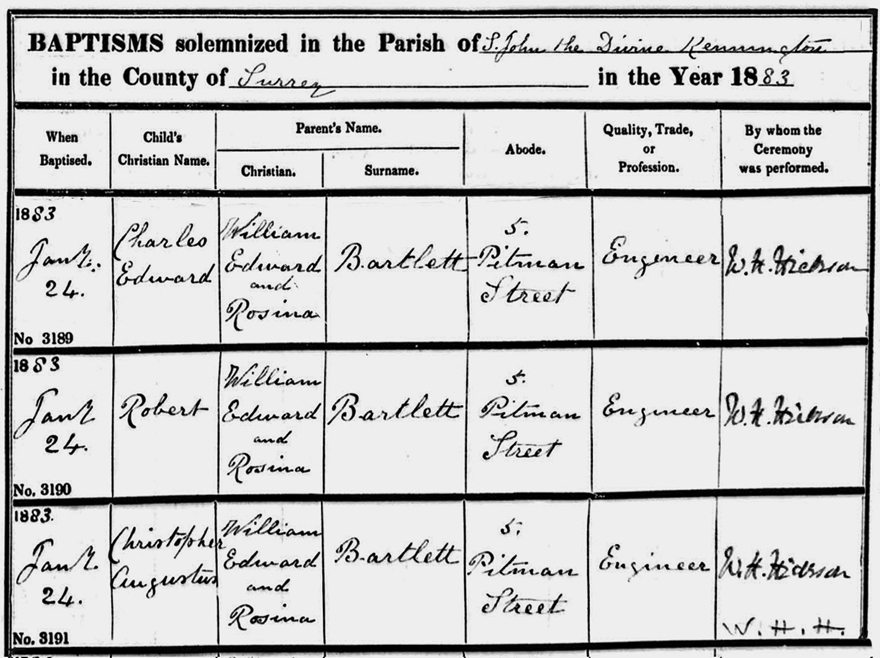 BAPTISMS solemnized in the Parish of S. John the Divine Kennington
in the County of Surrey in the Year 1883
When Baptised.
Child's Christian Name.
Parent's Name.
Christian.
Surname.
Abode.
Quality, Trade, or Profession.
By whom the Ceremony was performed.
1883
Jany.
24.
No 3189
Charles
Edward
William
Edward
and
Rosina
Bartlett
5.
Pitman
Street
Engineer
W. H. Hickson
1883
Jany
24.
No. 3190
Robert
William
Edward
and
Rosina
Bartlett
5.
Pitman
Street
Engineer
W. H. Hickson
1883.
Jany.
24.
No. 3191
Christopher
Augustus
William
Edward
and
Rosina
Bartlett
5.
Pitman
Street
Engineer
W. H. Hickson
W. H. H.